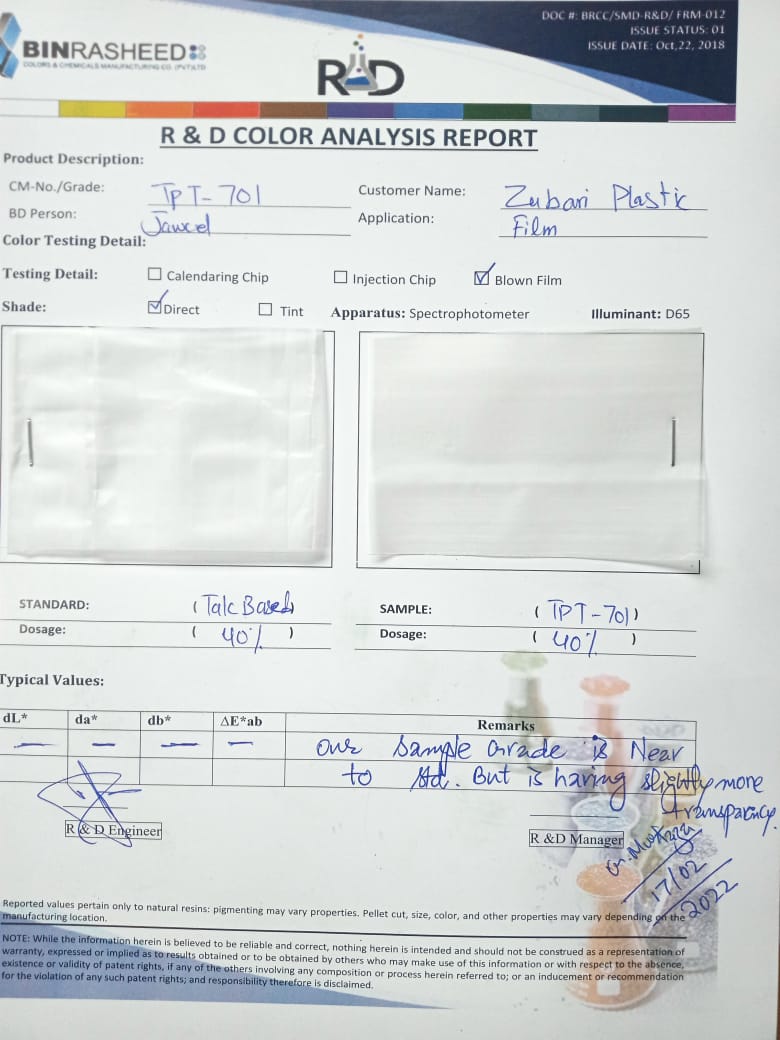 DOC #: BRCC/SMD-R&D/ FRM-012
ISSUE STATUS: 01
ISSUE DATE: Oct,22, 2018
BINRASHEED
COLORS & CHEMICALS MANUFACTURING CO. (PVT)LTD
R&D
R & D COLOR ANALYSIS REPORT
Product Description:
CM-No./Grade: TPT-701 Customer Name: Zubari Plastic
BD Person: Application: Film
Color Testing Detail:
Testing Detail: Calendaring Chip Injection Chip Blown Film
Shade: Direct Tint Apparatus: Spectrophotometer Illuminant: D65
STANDARD: (Talc Based) SAMPLE: (TPT-701)
Dosage: (40%) Dosage: (40%)
Typical Values:
dL* da* db* ΔE*ab Remarks
— — — — our sample Grade is Near
to std. But is having slightly more
transparency.
R & D Engineer R &D Manager
17/02
2022
Reported values pertain only to natural resins: pigmenting may vary properties. Pellet cut, size, color, and other properties may vary depending on the
manufacturing location.
NOTE: While the information herein is believed to be reliable and correct, nothing herein is intended and should not be construed as a representation of
warranty, expressed or implied as to results obtained or to be obtained by others who may make use of this information or with respect to the absence,
existence or validity of patent rights, if any of the others involving any composition or process herein referred to; or an inducement or recommendation
for the violation of any such patent rights; and responsibility therefore is disclaimed.